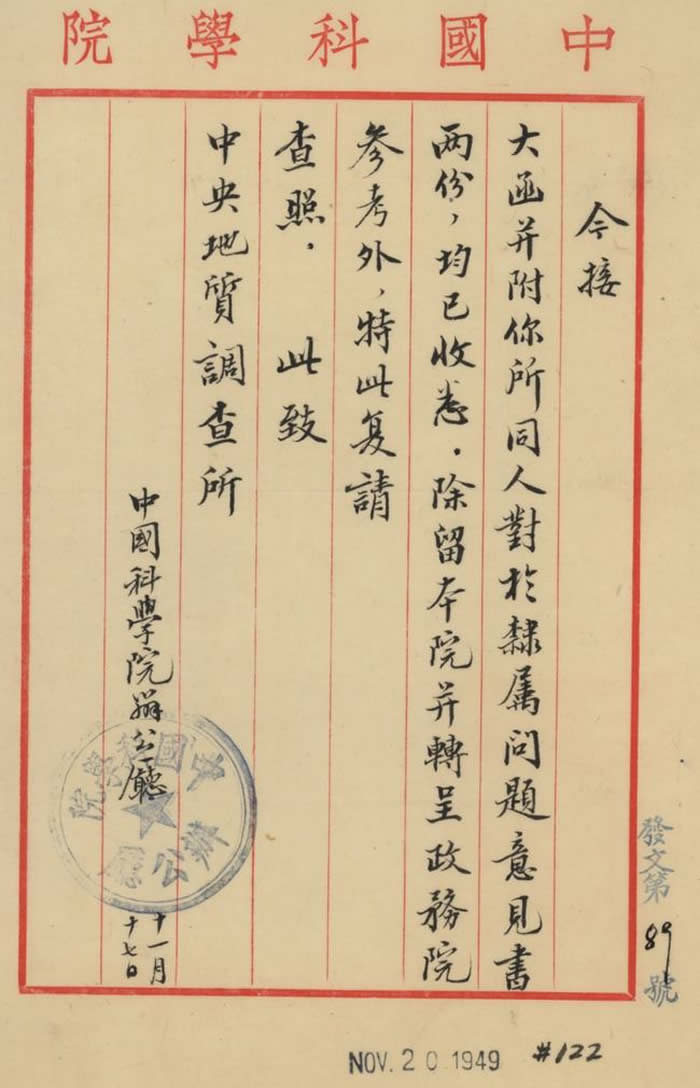 中國科學院
今接
大函并附你所同人對於隸属问題意見書
两份，均已收悉．除留本院并轉呈政務院
参考外，特此复請
查照． 此致
中央地質調查所
中國科學院辦公廳
十一月
十七日
中國科學院
辦公廳
發文第89號
NOV. 20 1949
#122